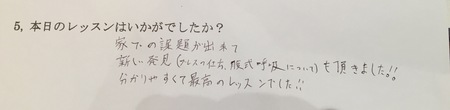 5, 本日のレッスンはいかがでしたか？
家での課題が出来て
新しい発見（ブレスの仕方、腹式呼吸について）を頂きました!!
分かりやすくて最高のレッスンでした!!